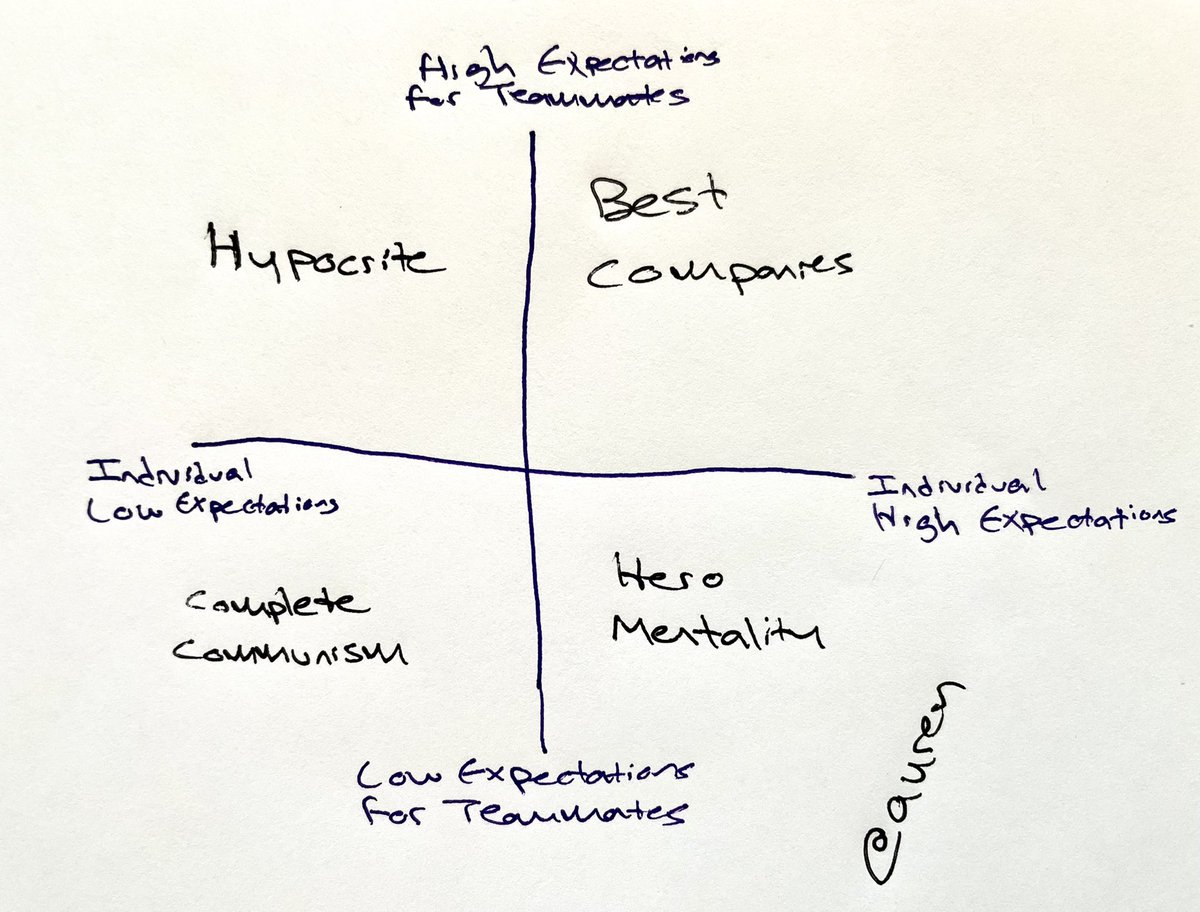 High Expectations
for Teammates
Hypocrite
Best
Companies
Individual
Low Expectations
Individual
High Expectations
Complete
Communism
Hero
Mentality
Low Expectations
for Teammates